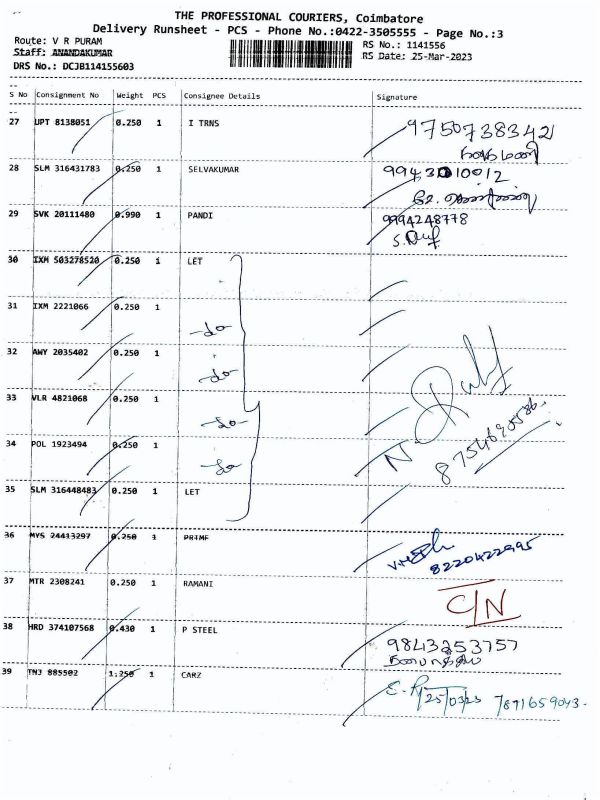 THE PROFESSIONAL COURIERS, Coimbatore
Delivery Runsheet - PCS - Phone No.:0422-3505555 - Page No.:3
Route: V R PURAM
RS No.: 1141556
Staff: ANANDAKUMAR
RS Date: 25-Mar-2023
DRS No.: DCJB114155603
S No Consignment No Weight PCS Consignee Details Signature
27 UPT 8138051 0.250 1 I TRNS 9750738342
28 SLM 316431783 0.250 1 SELVAKUMAR
29 SVK 20111480 0.990 1 PANDI 9994248778
30 IXM 503278520 0.250 1 LET
31 IXM 2221066 0.250 1 -do-
32 AWY 2035402 0.250 1 -do-
33 VLR 4821068 0.250 1 -do-
34 POL 1923494 0.250 1 -do-
35 SLM 316448483 0.250 1 LET
36 MYS 24413297 0.250 1 PRIME 8220422995
37 MTR 2308241 0.250 1 RAMANI C/N
38 HRD 374107568 0.430 1 P STEEL 9843253757
39 TNJ 885502 1.250 1 CARZ 25/03/23 7871659043-